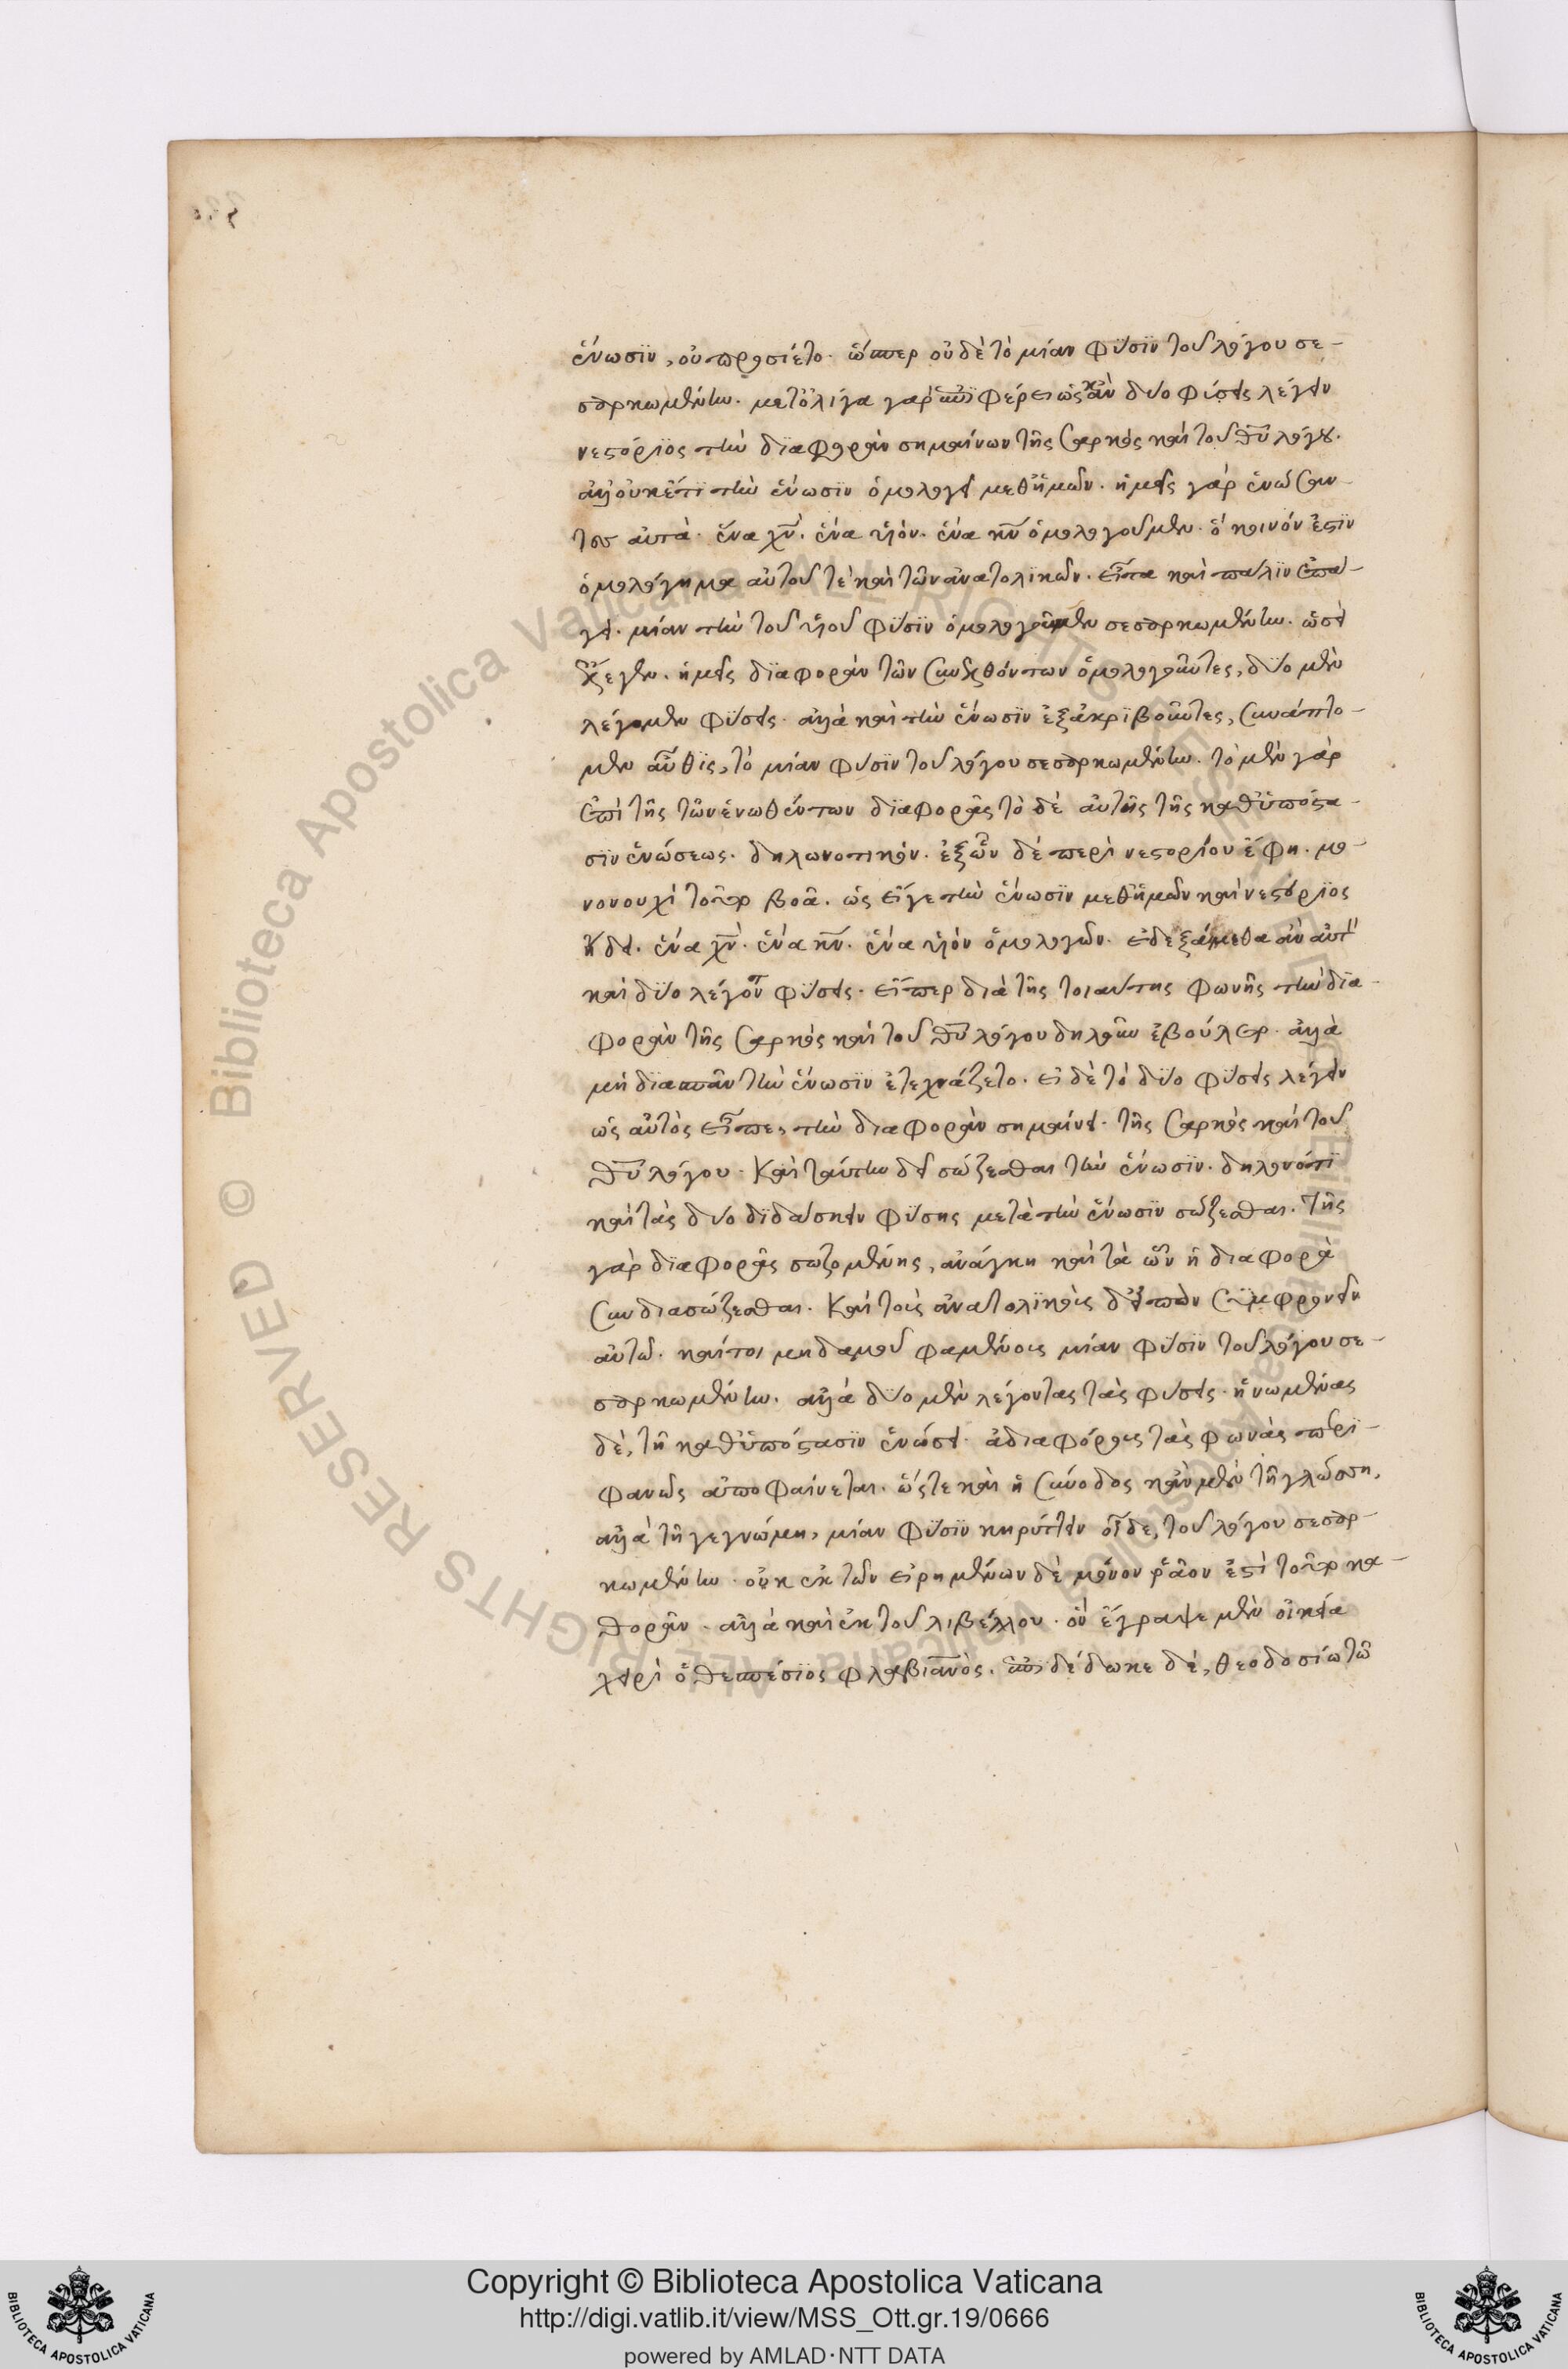 ἕνωσιν, οὐ προσίετο. ὥσπερ οὐδὲ τὸ μίαν φύσιν τοῦ λόγου σε-
σαρκωμένην. μετ' ὀλίγα γὰρ ἐπιφέρει ὡς κἂν δύο φύσεις λέγειν
νεστόριος τὴν διαφορὰν σημαίνων τῆς σαρκὸς καὶ τοῦ θυ λόγου.
ἀλλ' οὐκέτι τὴν ἕνωσιν ὁμολογεῖ μεθ' ἡμῶν. ἡμεῖς γὰρ ἑνώσαν-
τες αὐτὰ. ἕνα χν. ἕνα υἱόν. ἕνα κν ὁμολογοῦμεν. ὃ κοινόν ἐστιν
ὁμολόγημα αὐτοῦ τὲ καὶ τῶν ἀνατολικῶν. εἶτα καὶ πάλιν ἐπά-
γει. μίαν τὴν τοῦ υἱοῦ φύσιν ὁμολογοῦμεν σεσαρκωμένην. ὥστε
ἔλεγεν. ἡμεῖς διαφορὰν τῶν συνελθόντων ὁμολογοῦντες, δύο μὲν
λέγομεν φύσεις. ἀλλὰ καὶ τὴν ἕνωσιν ἐξακριβοῦντες, συνάπτο-
μεν αὖθις, τὸ μίαν φύσιν τοῦ λόγου σεσαρκωμένην. τὸ μὲν γὰρ
ἐπὶ τῆς τῶν ἑνωθέντων διαφορᾶς τὸ δὲ αὐτῆς τῆς καθ' ὑπόστα-
σιν ἑνώσεως. δηλωνοτικόν. ἐξ ὧν δὲ περὶ νεστορίου ἔφη. μο-
νονουχὶ τοῦτο βοᾶ. ὡς εἴγε τὴν ἕνωσιν μεθ' ἡμῶν καὶ νεστόριος
ᾔδει. ἕνα χν. ἕνα κν. ἕνα υἱόν ὁμολογῶν. ἐδεξάμεθα ἂν αὐτὸν
καὶ δύο λέγοντα φύσεις. εἴπερ διὰ τῆς τοιαύτης φωνῆς τὴν δια-
φορὰν τῆς σαρκὸς καὶ τοῦ θυ λόγου δηλοῦν ἐβούλετο. ἀλλὰ
μὴ διασπᾶν τὴν ἕνωσιν ἐτεχνάζετο. εἰ δὲ τὸ δύο φύσεις λέγειν
ὡς αὐτὸς εἶπε, τὴν διαφορὰν σημαίνει. τῆς σαρκὸς καὶ τοῦ
θυ λόγου. καὶ ταύτην δεῖ σώζεσθαι τὴν ἕνωσιν. δηλονότι
καὶ τὰς δύο διδάσκειν φύσης μετὰ τὴν ἕνωσιν σώζεσθαι. τῆς
γὰρ διαφορᾶς σωζομένης, ἀνάγκη καὶ τὰ ὧν ἡ διαφορὰ
συνδιασώζεσθαι. καὶ τοῖς ἀνατολικοῖς δ' εἰπὼν συμφρονεῖν
αὐτῶ. καίτοι μηδαμοῦ φαμένοις μίαν φύσιν τοῦ λόγου σε-
σαρκωμένην. ἀλλὰ δύο μὲν λέγοντας τὰς φύσεις. ἡνωμένας
δὲ, τῆ καθ' ὑπόστασιν ἑνώσει. ἀδιαφόροις τὰς φωνὰς περι-
φανῶς ἀποφαίνεται. ὥστε καὶ ἡ σύνοδος κἂν μὲν τῆ γλώσση,
ἀλλὰ τῆ γε γνώμη, μίαν φύσιν κηρύττειν οἶδε, τοῦ λόγου σεσαρ-
κωμένην. οὐκ ἐκ τῶν εἰρημένων δὲ μόνον ῥᾶον ἐστὶ τοῦτο κα-
θορᾶν. ἀλλὰ καὶ ἐκ τοῦ λιβέλλου. ὃν ἔγραψε μὲν οἰκεία
χειρὶ ὁ θεσπέσιος φλαβιανὸς. ἐπιδέδωκε δὲ, θεοδοσίω τῶ
Copyright © Biblioteca Apostolica Vaticana
http://digi.vatlib.it/view/MSS_Ott.gr.19/0666
powered by AMLAD·NTT DATA
BIBLIOTECA APOSTOLICA VATICANA
BIBLIOTECA APOSTOLICA VATICANA